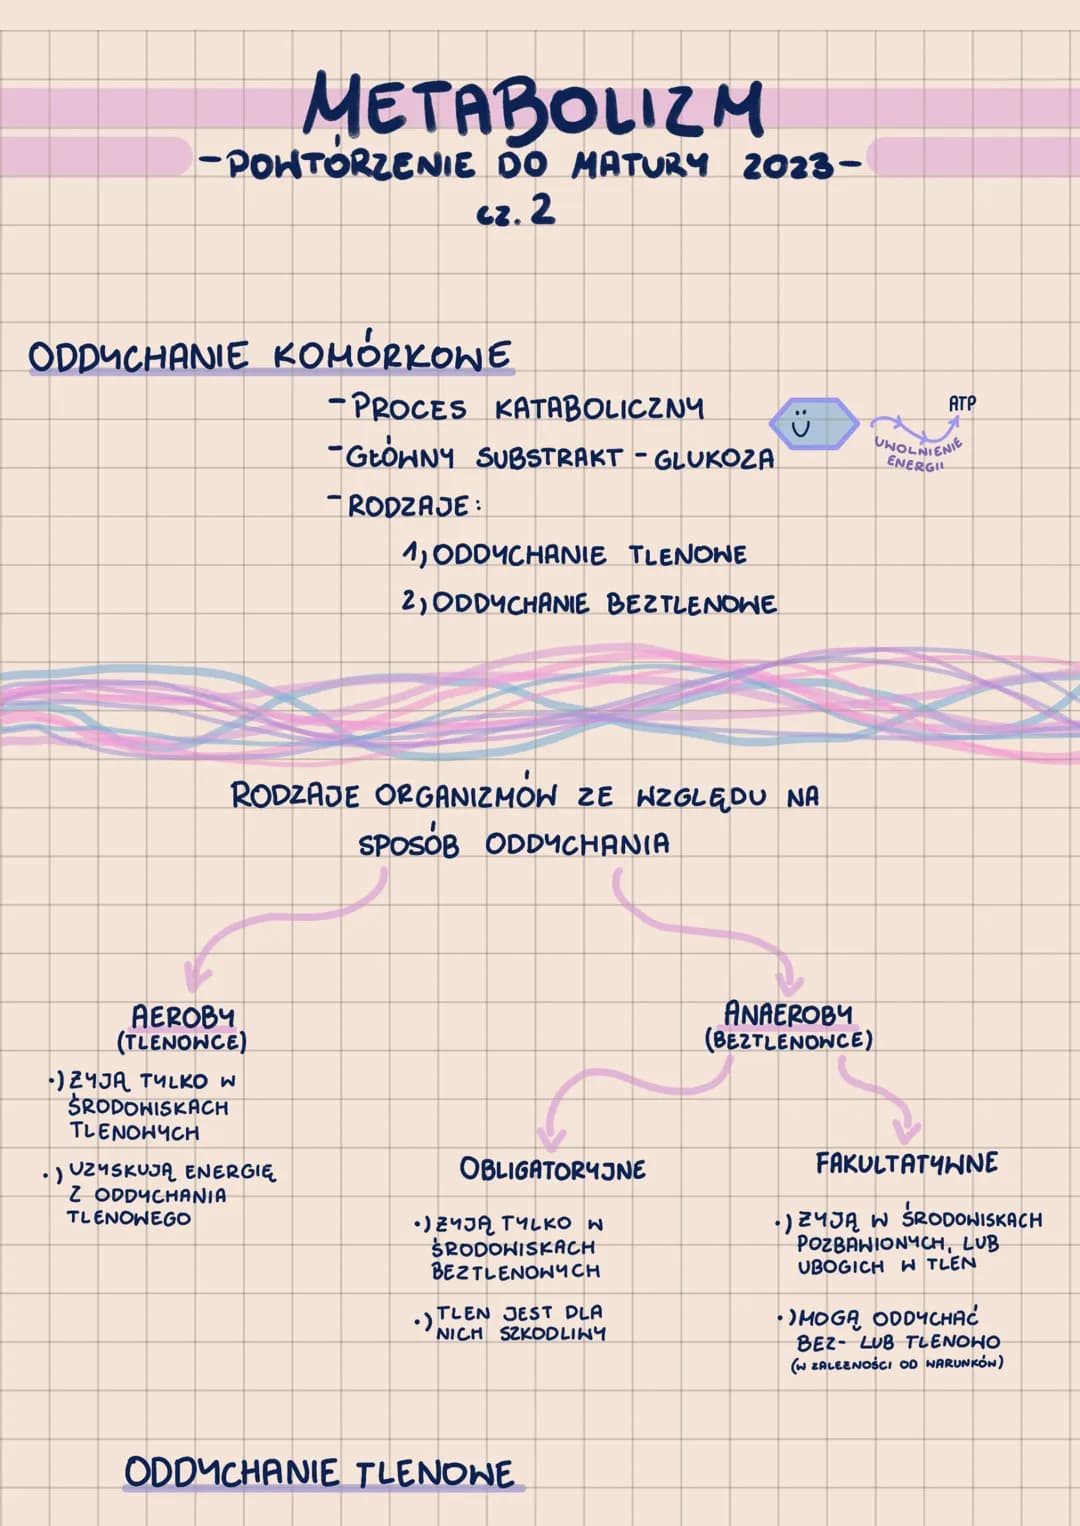 METABOLIZM
-POWTÓRZENIE DO MATURY 2023-
cz. 2
ODDYCHANIE KOMÓRKOWE
- PROCES KATABOLICZNY
- GŁÓWNY SUBSTRAKT - GLUKOZA
ATP
UWOLNIENIE
ENERGII
- RODZAJE:
1) ODDYCHANIE TLENOWE
2) ODDYCHANIE BEZTLENOWE
RODZAJE ORGANIZMÓW ZE WZGLĘDU NA
SPOSÓB ODDYCHANIA
AEROBY
(TLENOWCE)
·) ŻYJĄ TYLKO W
ŚRODOWISKACH
TLENOWYCH
·) UZYSKUJĄ ENERGIĘ
Z ODDYCHANIA
TLENOWEGO
ANAEROBY
(BEZTLENOWCE)
OBLIGATORYJNE
·) ŻYJĄ TYLKO W
ŚRODOWISKACH
BEZTLENOWYCH
·) TLEN JEST DLA
NICH SZKODLIWY
FAKULTATYWNE
·) ŻYJĄ W ŚRODOWISKACH
POZBAWIONYCH, LUB
UBOGICH W TLEN
·) MOGĄ ODDYCHAĆ
BEZ- LUB TLENOWO
(W ZALEŻNOŚCI OD WARUNKÓW)
ODDYCHANIE TLENOWE